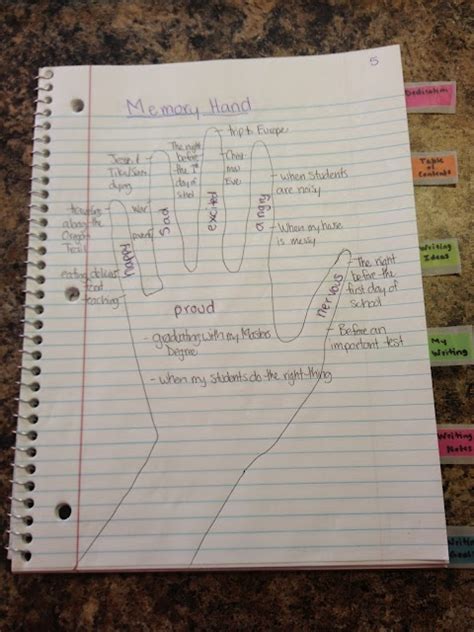 5
Memory Hand
trip to Europe
The night
before
the 1st
day of
school
Christ
mas
Eve
dying
when students
are noisy
traveling
along the
Oregon
Trail
war
sad
excited
angry
When my house
is messy
happy
eating delicious
food
teaching
nervous
The night
before the
first day of
school
proud
- graduating with my Masters
Degree
Before an
important test
- when my students do the right thing
Dedication
Table
of
Contents
Writing
Ideas
My
Writing
Writing
Notes
Writing
Goals